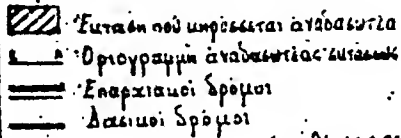 Ἔκταση πού κηρύσσεται ἀναδασωτέα
Ὁριογραμμή ἀναδασωτέας ἐκτάσεως
Ἐπαρχιακοί δρόμοι
Δασικοί δρόμοι